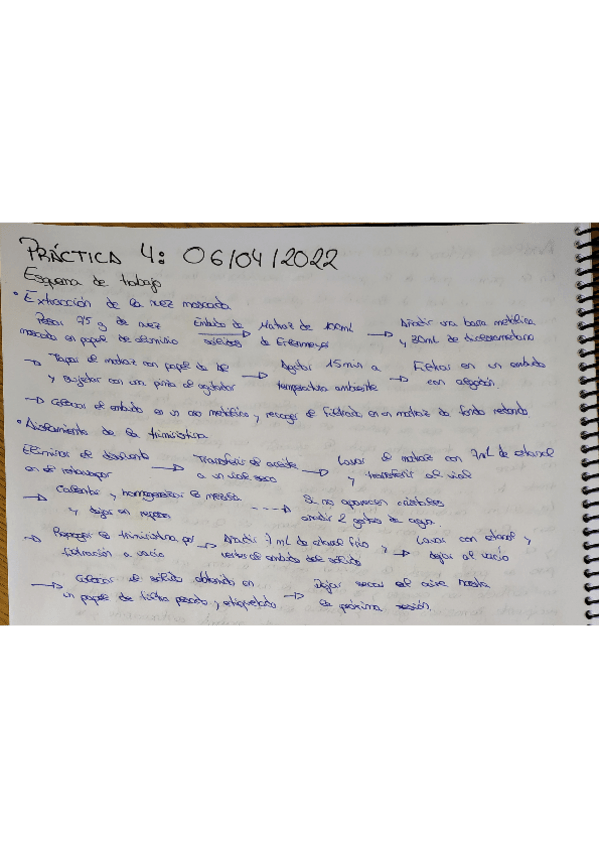 PRÁCTICA 4: 06/04/2022
Esquema de trabajo
• Extracción de la nuez moscada
Pesar 75 g de nuez Embudo de Matraz de 100ml Añadir una barra metálica
moscada en papel de aluminio → sólidos de Erlenmeyer → y 30mL de diclorometano
→ Tapar el matraz con papel de Agitar 15 min a Filtrar en un embudo
y sujetar con una pinza al agitador → temperatura ambiente → con algodón.
→ Colocar el embudo en un aro metálico y recoger el filtrado en un matraz de fondo redondo
• Aislamiento de la trimiristina
Eliminar el disolvente Transferir el aceite Lavar el matraz con 7mL de etanol
en el rotavapor → a un vial seco → y transferir al vial
→ Calentar y homogeneizar la mezcla Si no aparecen cristales
y dejar en reposo ---> añadir 2 gotas de agua.
→ Recoger la trimiristina por → Añadir 7 mL de etanol frío → Lavar con etanol y
filtración a vacío sólido y dejar al vacío
→ Colocar el sólido obtenido en Dejar secar al aire hasta
un papel de filtro pesado y etiquetado → la próxima sesión.